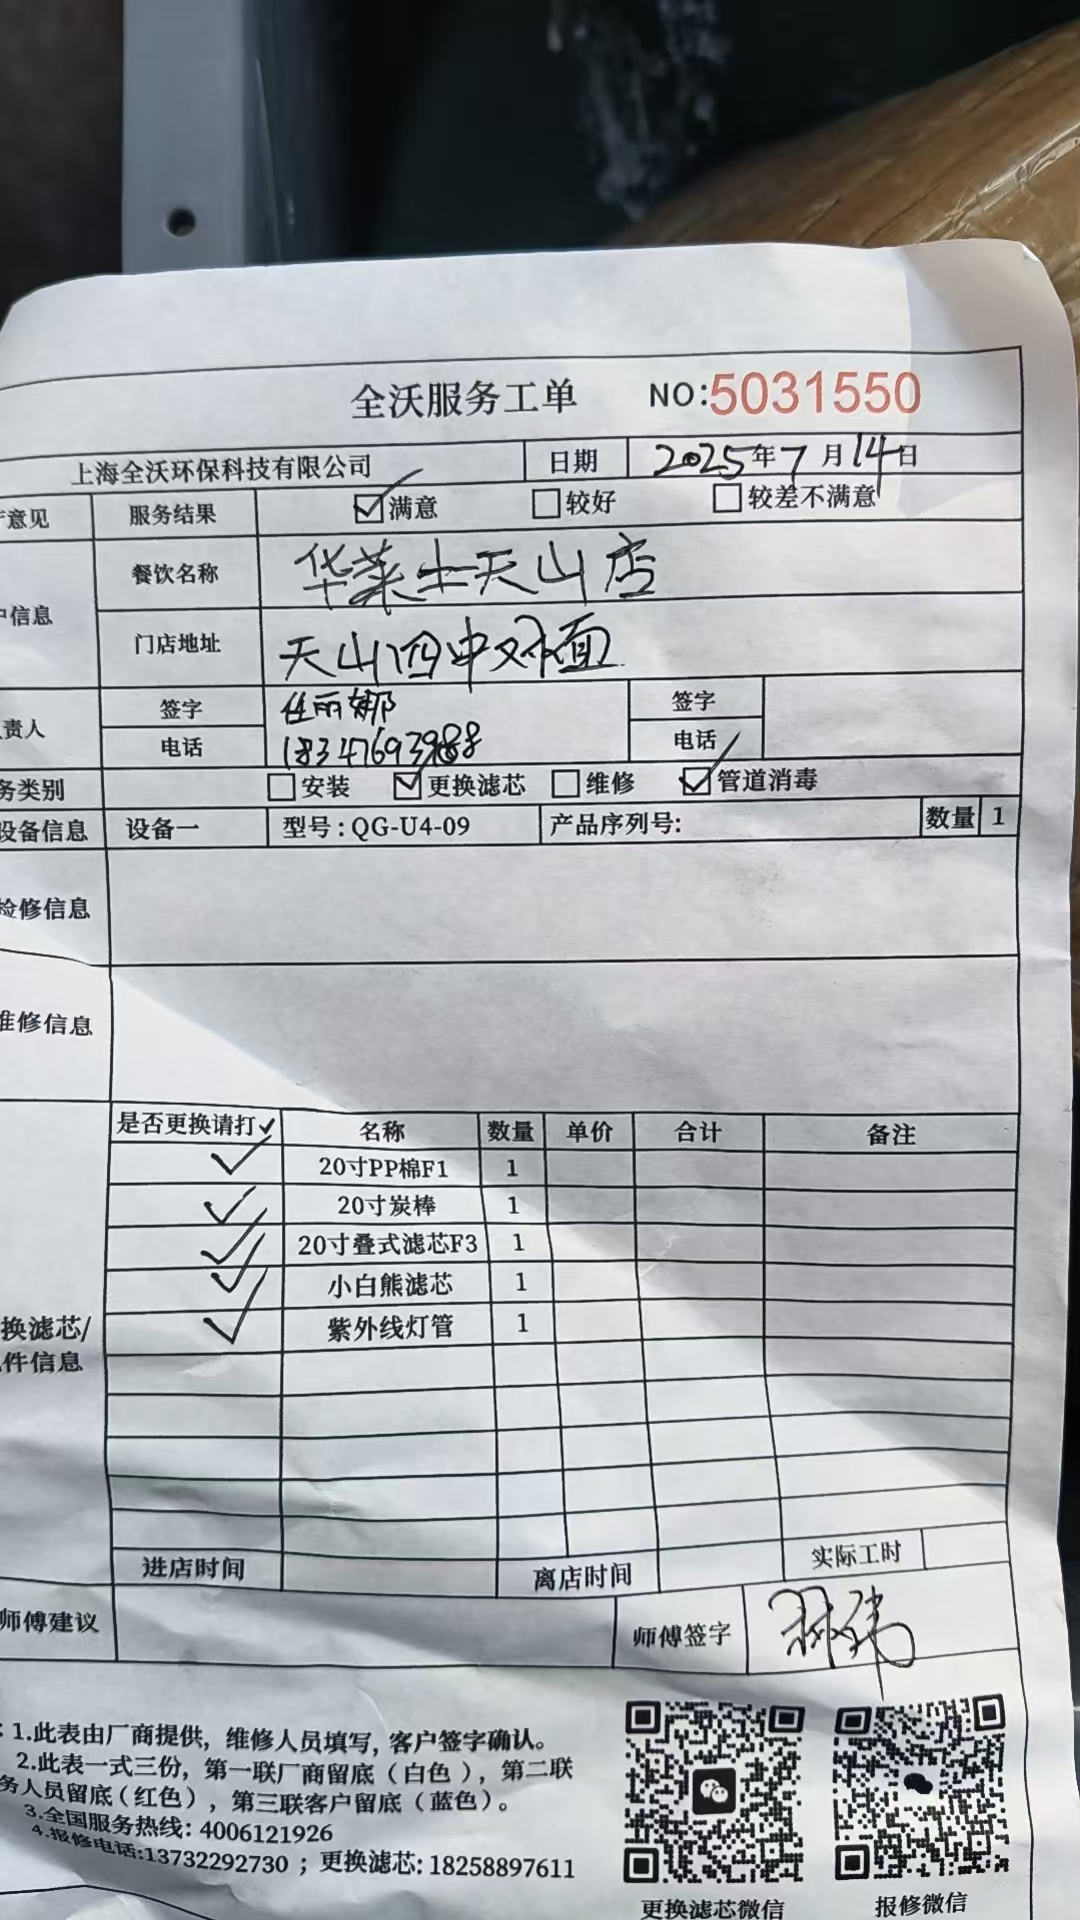 全沃服务工单 NO:5031550
上海全沃环保科技有限公司 日期 2025年7月14日
意见 服务结果 ☑满意 ☐较好 ☐较差不满意
户信息 餐饮名称 华莱士天山店
门店地址 天山四中对面
责人 签字 任丽娜 签字
电话 18347693988 电话
务类别 ☐安装 ☑更换滤芯 ☐维修 ☑管道消毒
设备信息 设备一 型号:QG-U4-09 产品序列号: 数量 1
检修信息
维修信息
是否更换请打✓ 名称 数量 单价 合计 备注
✓ 20寸PP棉F1 1
✓ 20寸炭棒 1
✓ 20寸叠式滤芯F3 1
✓ 小白熊滤芯 1
✓ 紫外线灯管 1
换滤芯/
件信息
进店时间 离店时间 实际工时
师傅建议 师傅签字
:1.此表由厂商提供,维修人员填写,客户签字确认。
2.此表一式三份,第一联厂商留底(白色),第二联
务人员留底(红色),第三联客户留底(蓝色)。
3.全国服务热线:4006121926
4.报修电话:13732292730;更换滤芯:18258897611
更换滤芯微信 报修微信